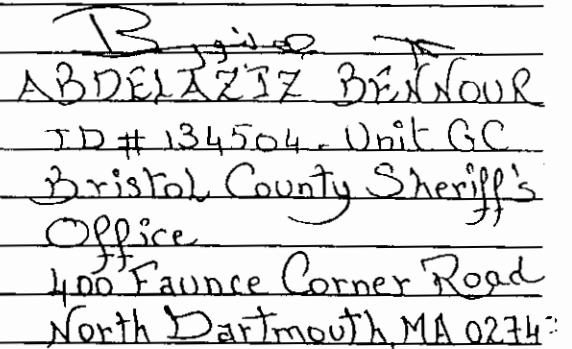 ABDELAZIZ BENNOUR
ID# 134504 - Unit GC
Bristol County Sheriff's
Office
400 Faunce Corner Road
North Dartmouth, MA 0274